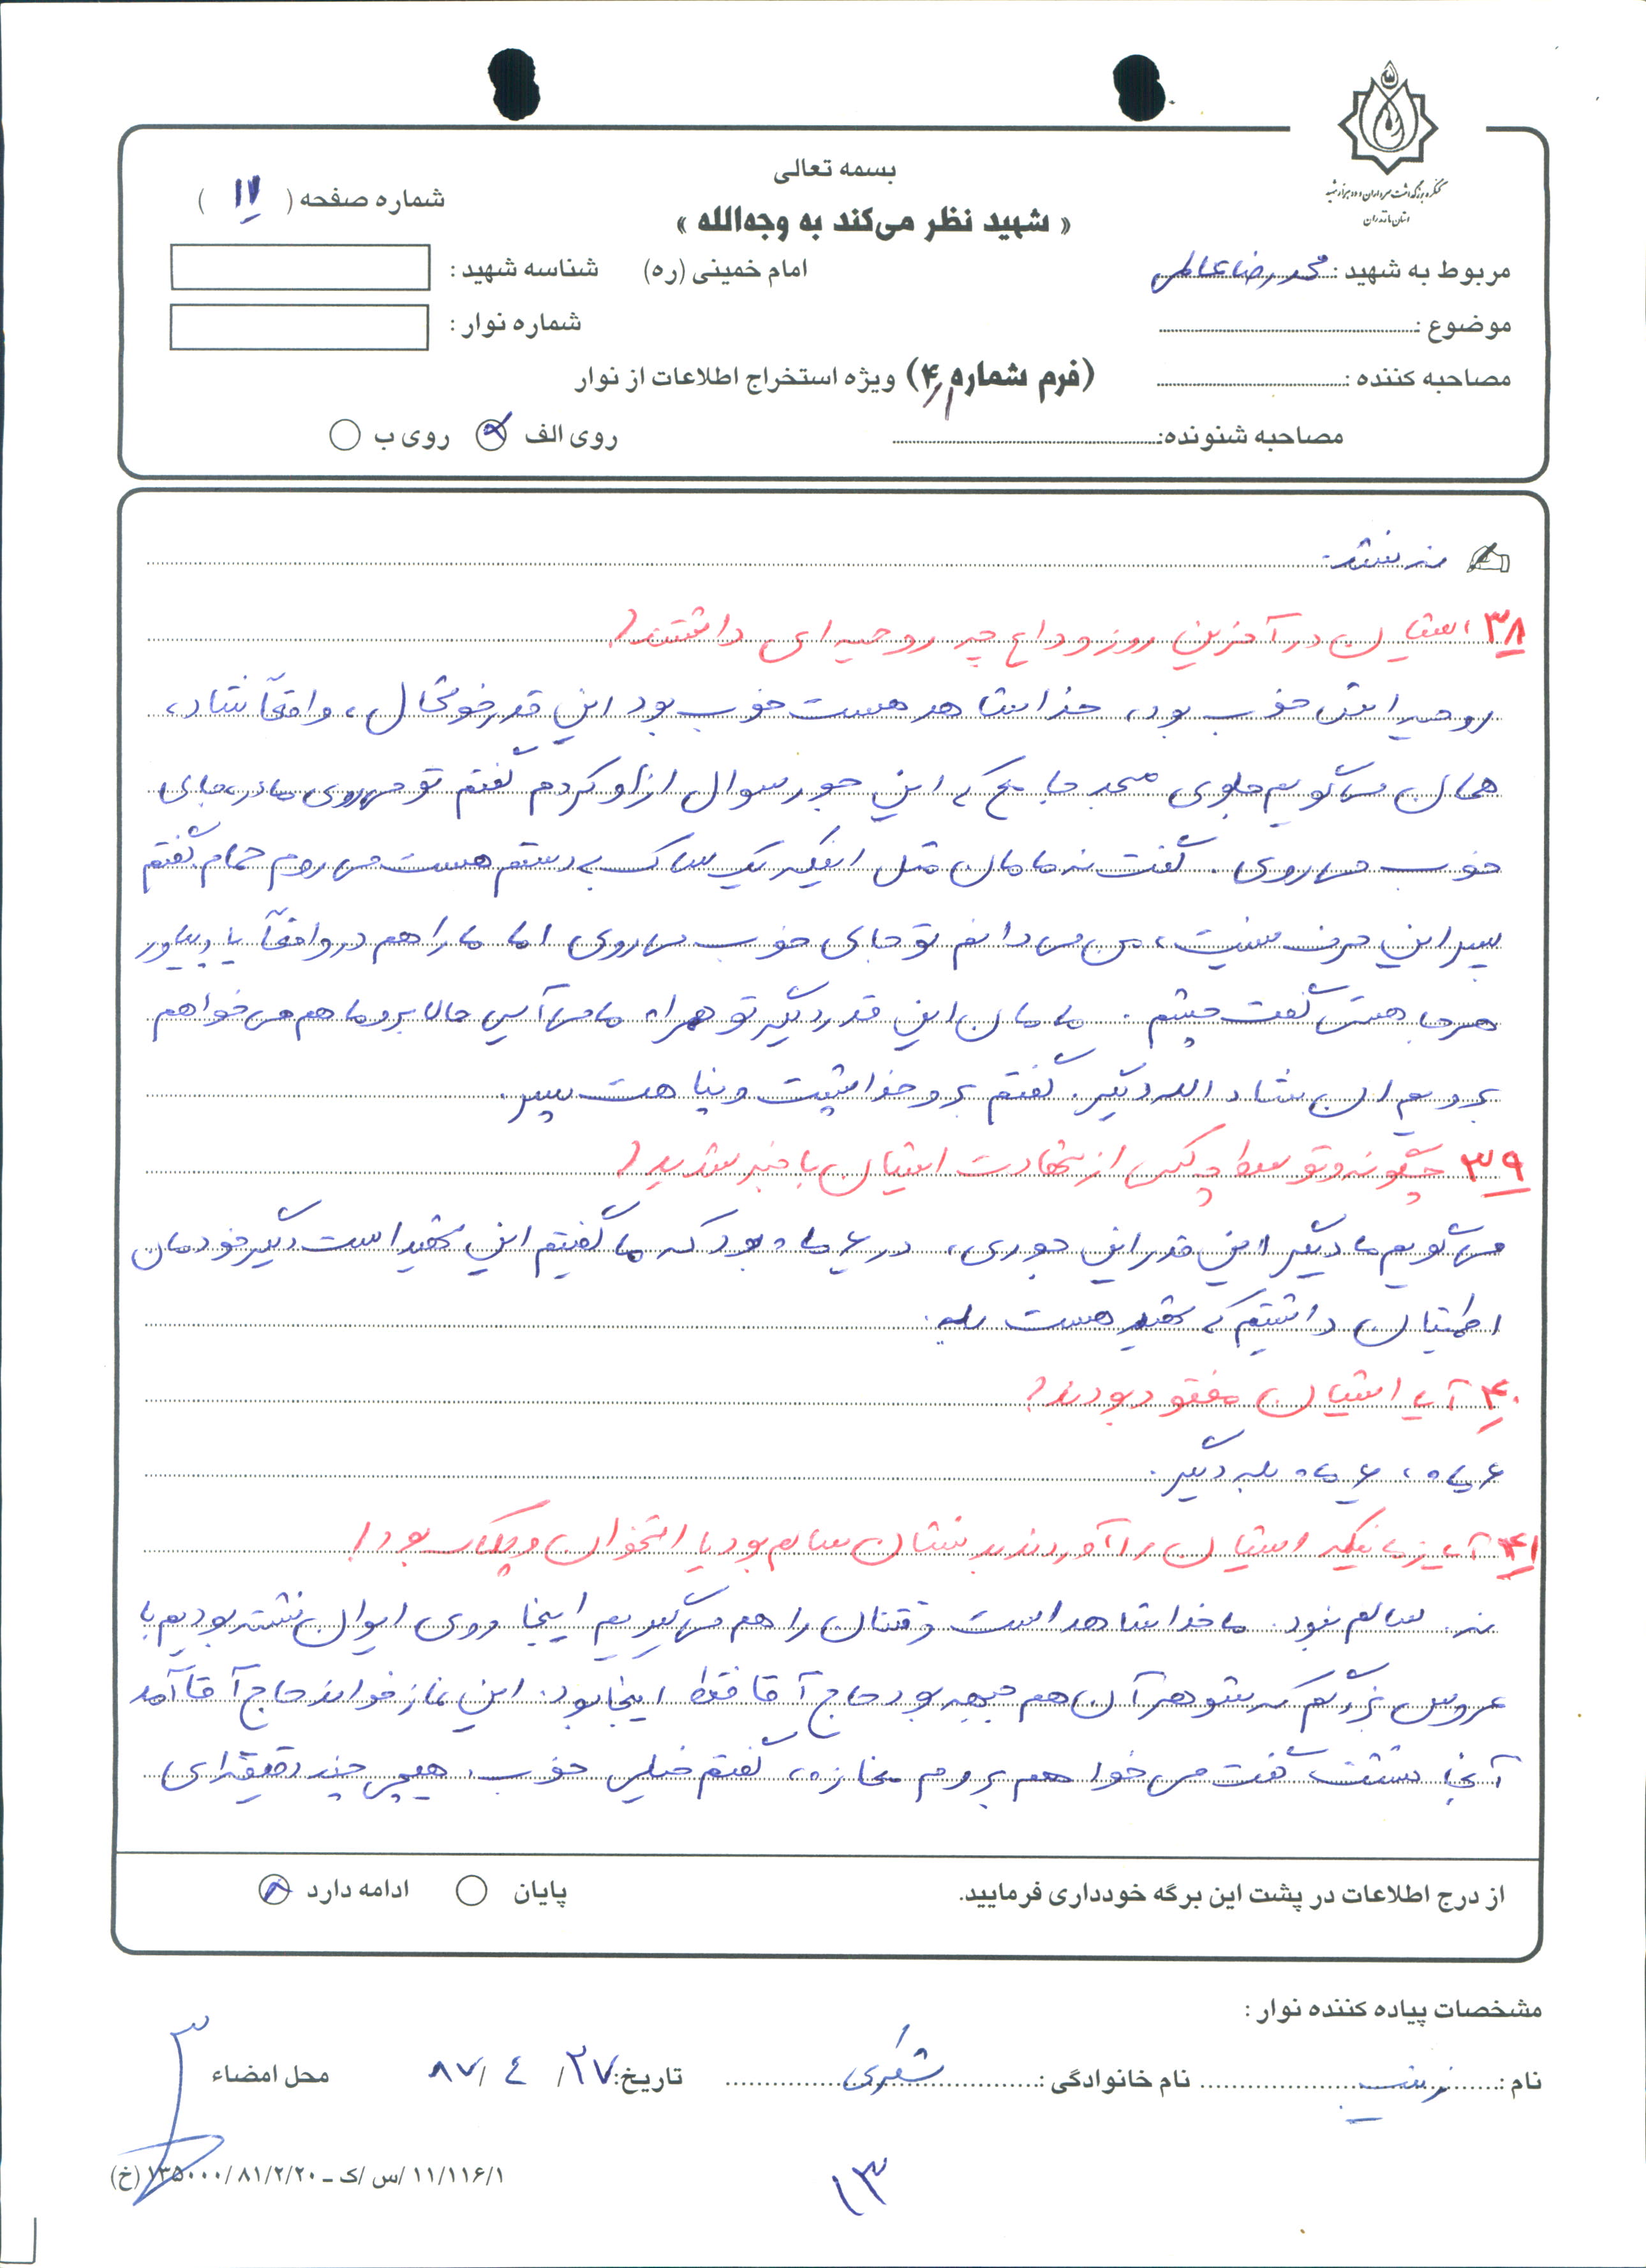 بسمه تعالی
« شهید نظر می‌کند به وجه‌الله »
امام خمینی (ره)
شماره صفحه ( ۱۷ )
کنگره بزرگداشت سرداران و ده هزار شهید
استان مازندران
مربوط به شهید : محمدرضا عاملی
شناسه شهید :
موضوع :
شماره نوار :
مصاحبه کننده :
(فرم شماره ۴/۱) ویژه استخراج اطلاعات از نوار
مصاحبه شونده:
روی الف
روی ب
نه نشد.
۳۸ ایشان در آخرین روز وداع چه روحیه‌ای داشتند؟
روحیه اش خوب بود، خدا شاهد هست خوب بود این قدر خوشحال، واقعاً شاد،
همان می‌گویم جلوی مسجد جامع که این جور سوال از او کردم گفتم تو میروی مادر، جای
خوب می‌روی. گفت نه مامان مثل اینکه یک ساک به دستم هست می‌روم حمام گفتم
پسر این حرف نیست، من می‌دانم تو جای خوب می‌روی اما ما را هم در واقعاً یاد بیاور
هرجا هستی گفت چشم. مامان این قدر دیگر تو همراه ما می‌آیی حالا برو ما هم می‌خواهم
برویم ان شاء الله دیگر. گفتم برو خدا پشت و پناهت پسر.
۳۹ چگونه و توسط چه کسی از شهادت ایشان باخبر شدید؟
می‌گویم ما دیگر این قدر این جوری، در ۶ ماه بود که ما گفتیم این شهید است دیگر خودمان
اطمینان داشتیم که شهید هست بله.
۴۰ آیا ایشان مفقود بودند؟
۶ ماه، ۶ ماه بله دیگر.
۴۱ آیا زمانیکه ایشان را آوردند بدنشان سالم بود یا استخوان و پلاک بود؟
نه. سالم نبود. ما خدا شاهد است وقتتان را هم می‌گیریم اینجا روی ایوان نشسته بودیم با
عروس بزرگم که شوهر آن هم جبهه بود حاج آقا فقط اینجا بود. این نماز خواند حاج آقا آمد
آنجا نشست گفت می‌خواهم بروم مغازه، گفتم خیلی خوب. هیچی چند دقیقه‌ای
از درج اطلاعات در پشت این برگه خودداری فرمایید.
پایان
ادامه دارد
مشخصات پیاده کننده نوار :
نام : زینب
نام خانوادگی : شکری
تاریخ: ۲۷/ ٤ /۸۷
محل امضاء
۱۱/۱۱۶/۱ /س /ک ـ ۸۱/۲/۲۰ /۱۳۵۰۰۰ (خ)
۱۳